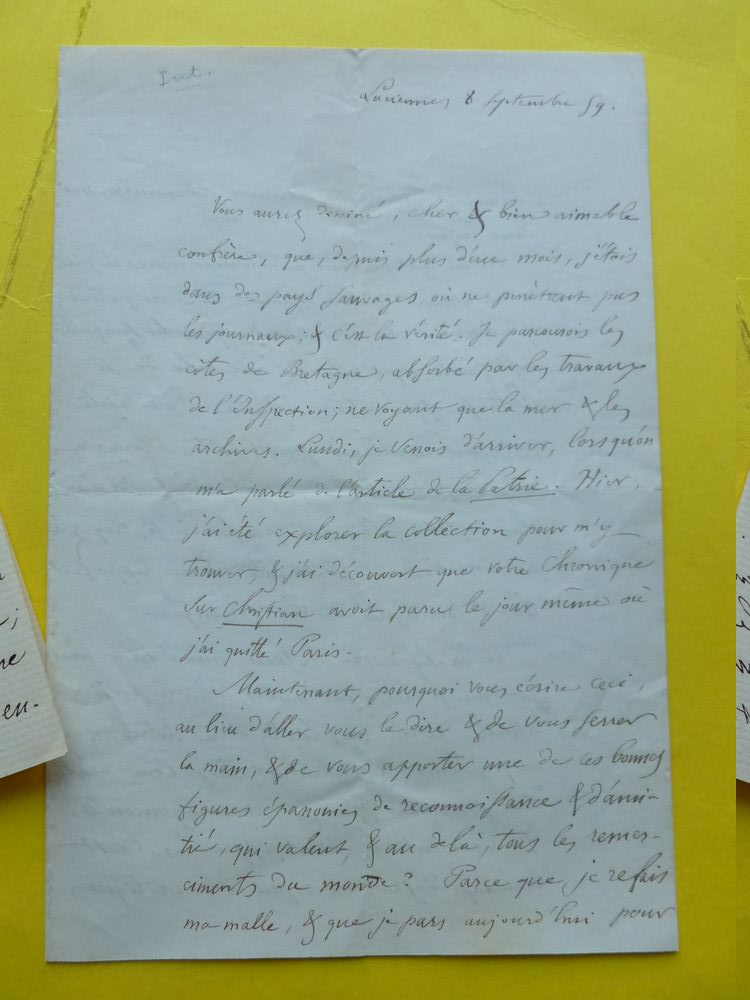 Int.
Luciennes, 8 Septembre 59.
Vous aurez deviné, cher & bien aimable
confrère, que, depuis plus d'un mois, j'étois
dans des pays sauvages où ne pénètrent pas
les journaux; & c'est la vérité. Je parcourois les
côtes de Bretagne, absorbé par les travaux
de l'Inspection; ne voyant que la mer & les
archives. Lundi, je venois d'arriver, lorsqu'on
m'a parlé de l'article de la Patrie. Hier,
j'ai été explorer la collection pour m'y
trouver, & j'ai découvert que votre Chronique
sur Christian avoit paru le jour même où
j'ai quitté Paris.
Maintenant, pourquoi vous écrire ceci,
au lieu d'aller vous le dire & de vous serrer
la main, & de vous apporter une de ces bonnes
figures épanouies de reconnoissance & d'ami-
tié, qui valent, & au delà, tous les remer-
ciments du monde? Parce que je refais
ma malle, & que je pars aujourd'hui pour
;
en-